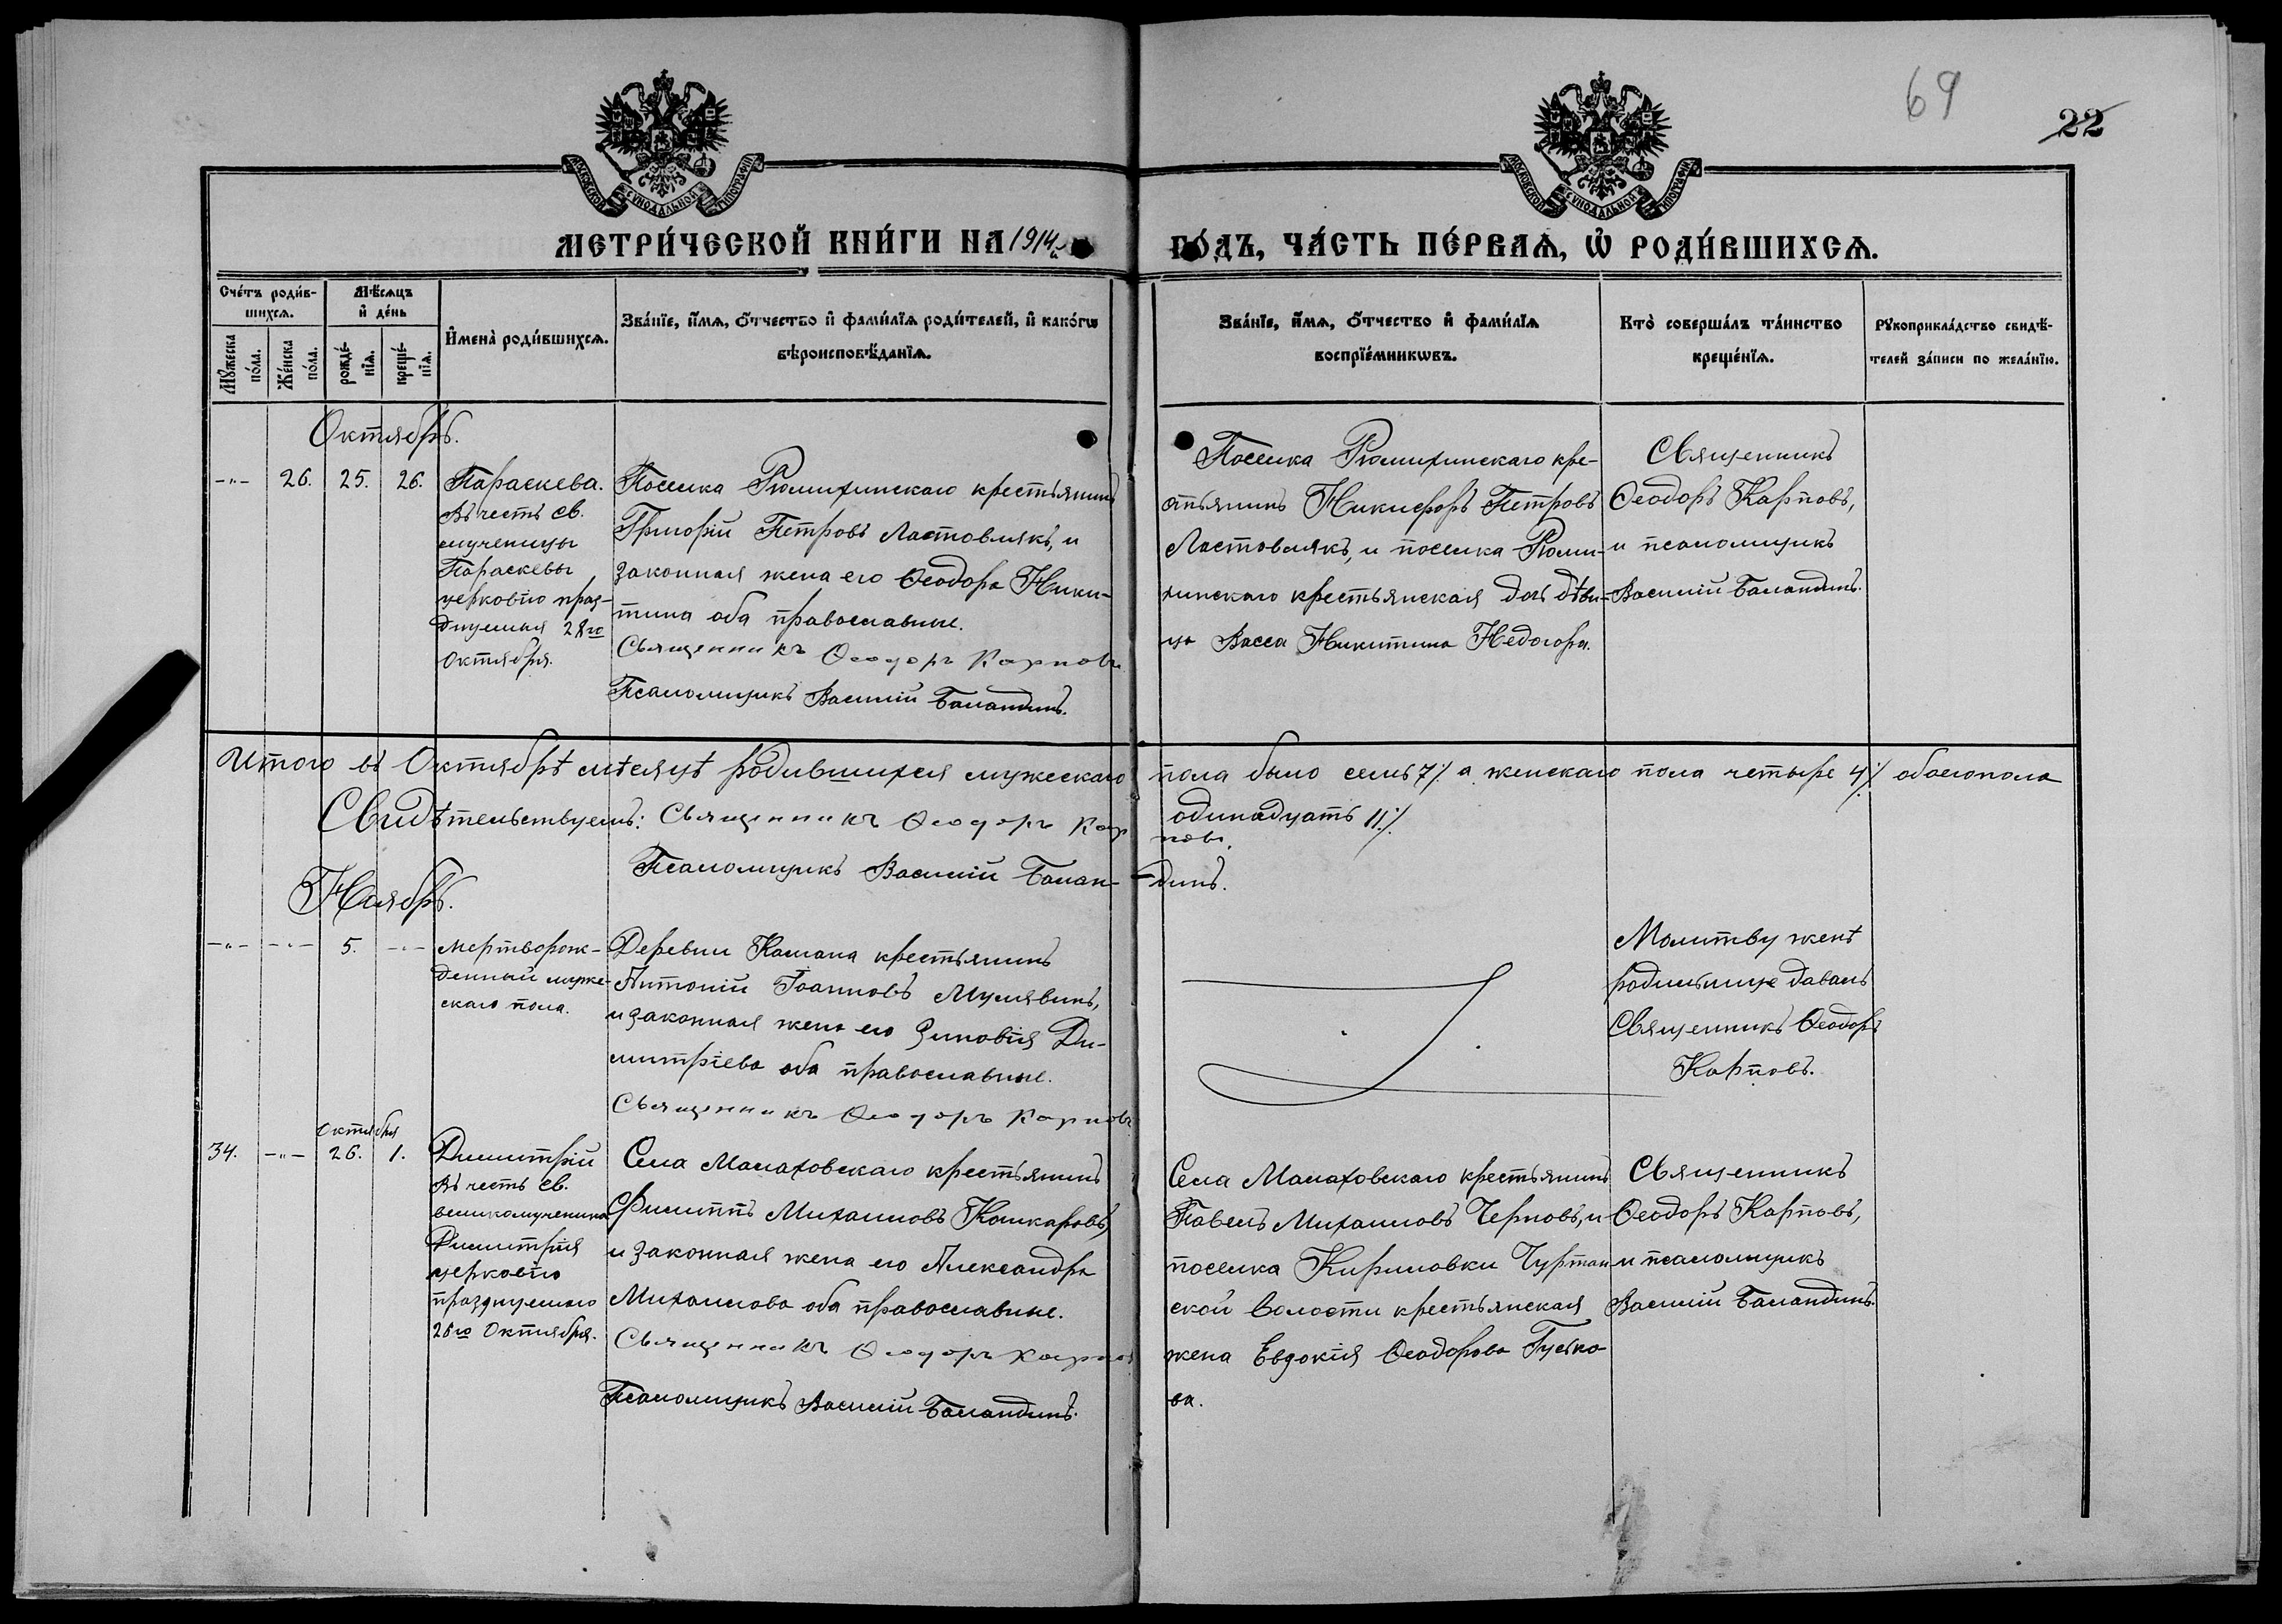 69
22
МОСКОВСКОЙ СѴНОДАЛЬНОЙ ТИПОГРАФІИ
МОСКОВСКОЙ СѴНОДАЛЬНОЙ ТИПОГРАФІИ
МЕТРИ́ЧЕСКОЙ КНИ́ГИ НА 1914
ГО́ДЪ, ЧА́СТЬ ПЕ́РВАѦ, Ѡ РОДИ́ВШИХСѦ.
Сче́тъ роди́в-
шихсѧ.
Мꙋ́жеска
по́ла.
Же́нска
по́ла.
Мѣ́сѧцъ
и҆ де́нь
рожде́-
нїѧ.
креще́-
нїѧ.
И҆мена̀ роди́вшихсѧ.
Зва́нїе, и҆́мѧ, ѻ҆́тчество и҆ фамилїѧ роди́телей, и҆ како́гѡ
вѣроисповѣ́данїѧ.
Зва́нїе, и҆́мѧ, ѻ҆́тчество и҆ фами́лїѧ
воспрїе́мникѡвъ.
Кто̀ соверша́лъ та́инство
креще́нїѧ.
Рꙋкоприкла́дство свидѣ́-
телей за́писи по жела́нїю.
Октябрь.
-"- 26. 25. 26.
Параскева.
Въ честь св.
мученицы
Параскевы
церковію праз-
днуемыя 28го
Октября.
Поселка Рюмихинскаго крестьянинъ
Григорій Петровъ Ластовлякъ, и
законная жена его Ѳеодора Ники-
тина оба православные.
Священникъ Ѳеодоръ Карповъ
Псаломщикъ Василій Баландинъ.
Поселка Рюмихинскаго кре-
стьянинъ Никифоръ Петровъ
Ластовлякъ, и поселка Рюми-
хинскаго крестьянская дочь дѣви-
ца Васса Никитина Недогора.
Священникъ
Ѳеодоръ Карповъ,
и псаломщикъ
Василій Баландинъ.
Итого въ Октябрѣ мѣсяцѣ родившихся мужескаго пола было семь 7% а женскаго пола четыре 4% обоегопола
одинадцать 11%
Свидѣтельствуемъ: Священникъ Ѳеодоръ Кар
повъ.
Псаломщикъ Василій Балан-
динъ.
Ноябрь.
-"- -"- 5. -"-
Мертворож-
денный муже-
скаго пола.
Деревни Камана крестьянинъ
Антоній Іоанновъ Мулявинъ,
и законная жена его Зиновія Ди-
митріева оба православные.
Священникъ Ѳеодоръ Карповъ
Молитву женѣ
родильнице давалъ
Священникъ Ѳеодоръ
Карповъ.
Октября
34. -"- 26. 1.
Димитрій
Въ честь св.
великомученика
Димитрія
церковію
празднуемаго
26го Октября.
Села Малаховскаго крестьянинъ
Филиппъ Михаиловъ Кошкаровъ,
и законная жена его Александра
Михаилова оба православные.
Священникъ Ѳеодоръ Карпов
Псаломщикъ Василій Баландинъ.
Села Малаховскаго крестьянинъ
Павелъ Михаиловъ Черновъ, и
поселка Кириловки Чуртан-
ской волости крестьянская
жена Евдокія Ѳеодорова Гусько-
ва.
Священникъ
Ѳеодоръ Карповъ,
и псаломщикъ
Василій Баландинъ.